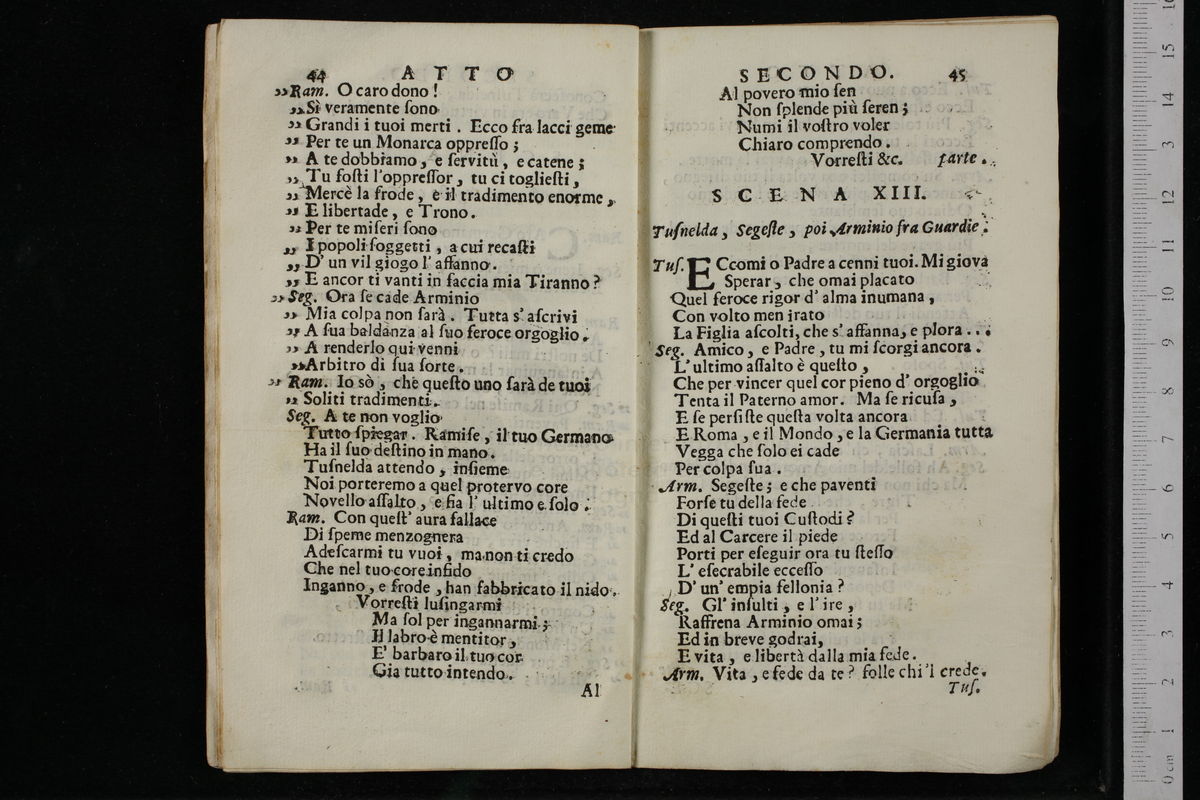 44 ATTO
„Ram. O caro dono !
„Sì veramente ſono
„ Grandi i tuoi merti . Ecco fra lacci geme
„ Per te un Monarca oppreſſo ;
„ A te dobbiamo , e ſervitù , e catene ;
„ Tu foſti l'oppreſſor , tu ci toglieſti ,
„ Mercè la frode , e il tradimento enorme ,
„ E libertade , e Trono .
„ Per te miſeri ſono
„ I popoli ſoggetti , a cui recaſti
„ D' un vil giogo l' affanno .
„ E ancor ti vanti in faccia mia Tiranno ?
„ Seg. Ora ſe cade Arminio
„ Mia colpa non ſarà . Tutta s' aſcrivi
„ A ſua baldanza al ſuo feroce orgoglio .
„ A renderlo qui venni
„Arbitro di ſua ſorte .
„ Ram. Io sò , che queſto uno ſarà de tuoi
„ Soliti tradimenti .
Seg. A te non voglio
Tutto ſpiegar . Ramiſe , il tuo Germano
Ha il ſuo deſtino in mano .
Tuſnelda attendo , inſieme
Noi porteremo a quel protervo core
Novello aſſalto , e fia l' ultimo e ſolo .
Ram. Con queſt' aura fallace
Di ſpeme menzognera
Adeſcarmi tu vuoi , ma non ti credo
Che nel tuo core infido
Inganno , e frode , han fabbricato il nido .
Vorreſti luſingarmi
Ma ſol per ingannarmi ;
Il labro è mentitor ,
E' barbaro il tuo cor
Gia tutto intendo .
Al
SECONDO. 45
Al povero mio ſen
Non ſplende più ſeren ;
Numi il voſtro voler
Chiaro comprendo .
Vorreſti &c. parte .
SCENA XIII.
Tuſnelda , Segeſte , poi Arminio fra Guardie .
Tuſ. ECcomi o Padre a cenni tuoi. Mi giova
Sperar , che omai placato
Quel feroce rigor d' alma inumana ,
Con volto men irato
La Figlia aſcolti, che s' affanna, e plora . . .
Seg. Amico , e Padre , tu mi ſcorgi ancora .
L' ultimo aſſalto è queſto ,
Che per vincer quel cor pieno d' orgoglio
Tenta il Paterno amor . Ma ſe ricuſa ,
E ſe perſiſte queſta volta ancora
E Roma , e il Mondo , e la Germania tutta
Vegga che ſolo ei cade
Per colpa ſua .
Arm. Segeſte ; e che paventi
Forſe tu della fede
Di queſti tuoi Cuſtodi ?
Ed al Carcere il piede
Porti per eſeguir ora tu ſteſſo
L' eſecrabile ecceſſo
D' un' empia fellonia ?
Seg. Gl' inſulti , e l' ire ,
Raffrena Arminio omai ;
Ed in breve godrai,
E vita , e libertà dalla mia fede .
Arm. Vita , e fede da te ? folle chi 'l crede .
Tuſ.
0 cm 1 2 3 4 5 6 7 8 9 10 11 12 13 14 15 16